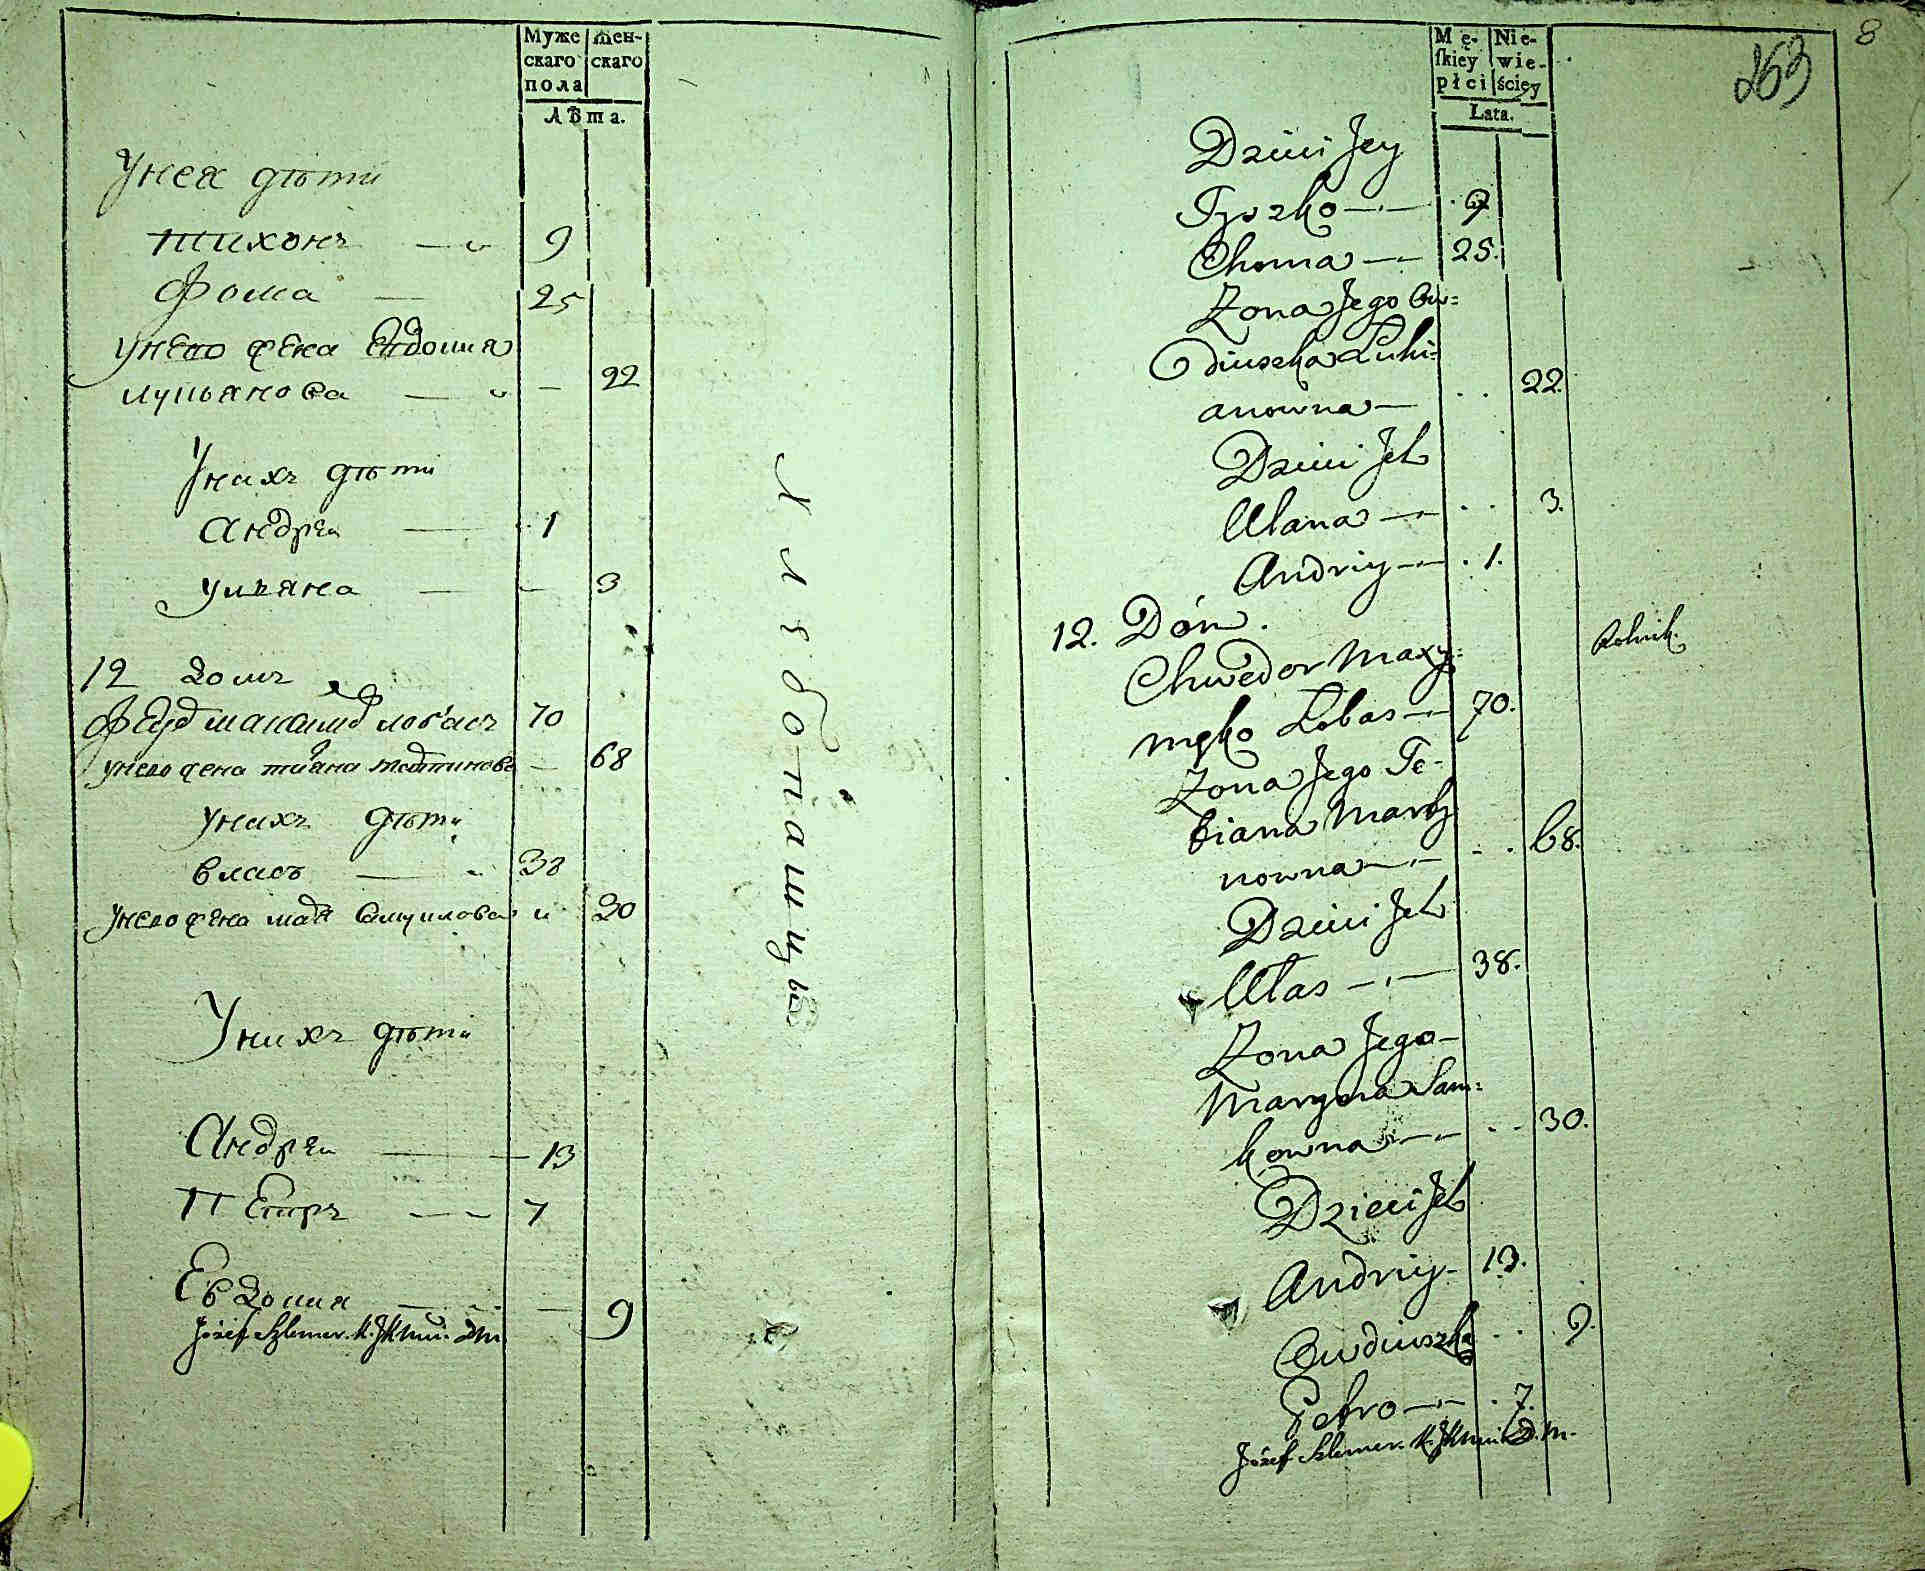 Муже
скаго
пола
Жен-
скаго
Лѣта.
Унея дѣти
Тихонъ — 9
Фома — 25
унево жена Евдокия
лукьянова — — 22
Унихъ дѣти
Андрей — 1
Ульяна — — 3
12 домъ
Федор максимов лобасъ 70
унево жена татиана мартинова — 68
Унихъ дѣти
Власъ — 38
Унево жена мария самуилова 30
Унихъ дѣти
Андрей — 13
Петръ — 7
Евдокия — — 9
Józef Szlemer. K. JKMci. D.M.
Хлѣбопашцы
8
263
Mę-
ſkiey
płci
Nie-
wie-
ściey
Lata.
Dzieci Jey
Tyszko — 9
Choma — 25.
Żona Jego Ow=
diuszka Łuki=
anowna — . . 22.
Dzieci Jch
Ulana — . . 3.
Andriy — . 1.
12. Dóm.
Chwedor Maxy=
męko Łobas — 70.
Rolnik.
Żona Jego Te-
ciana Marty
nowna — . . 68.
Dzieci Jch
Ułas — 38.
Żona Jego —
Maryna Sam=
kowna — . . 30.
Dzieci Jch
Andriy — 13.
Owdiuszka . . 9.
Petro — . 7.
Józef Szlemer. K. JKMci. D.M.